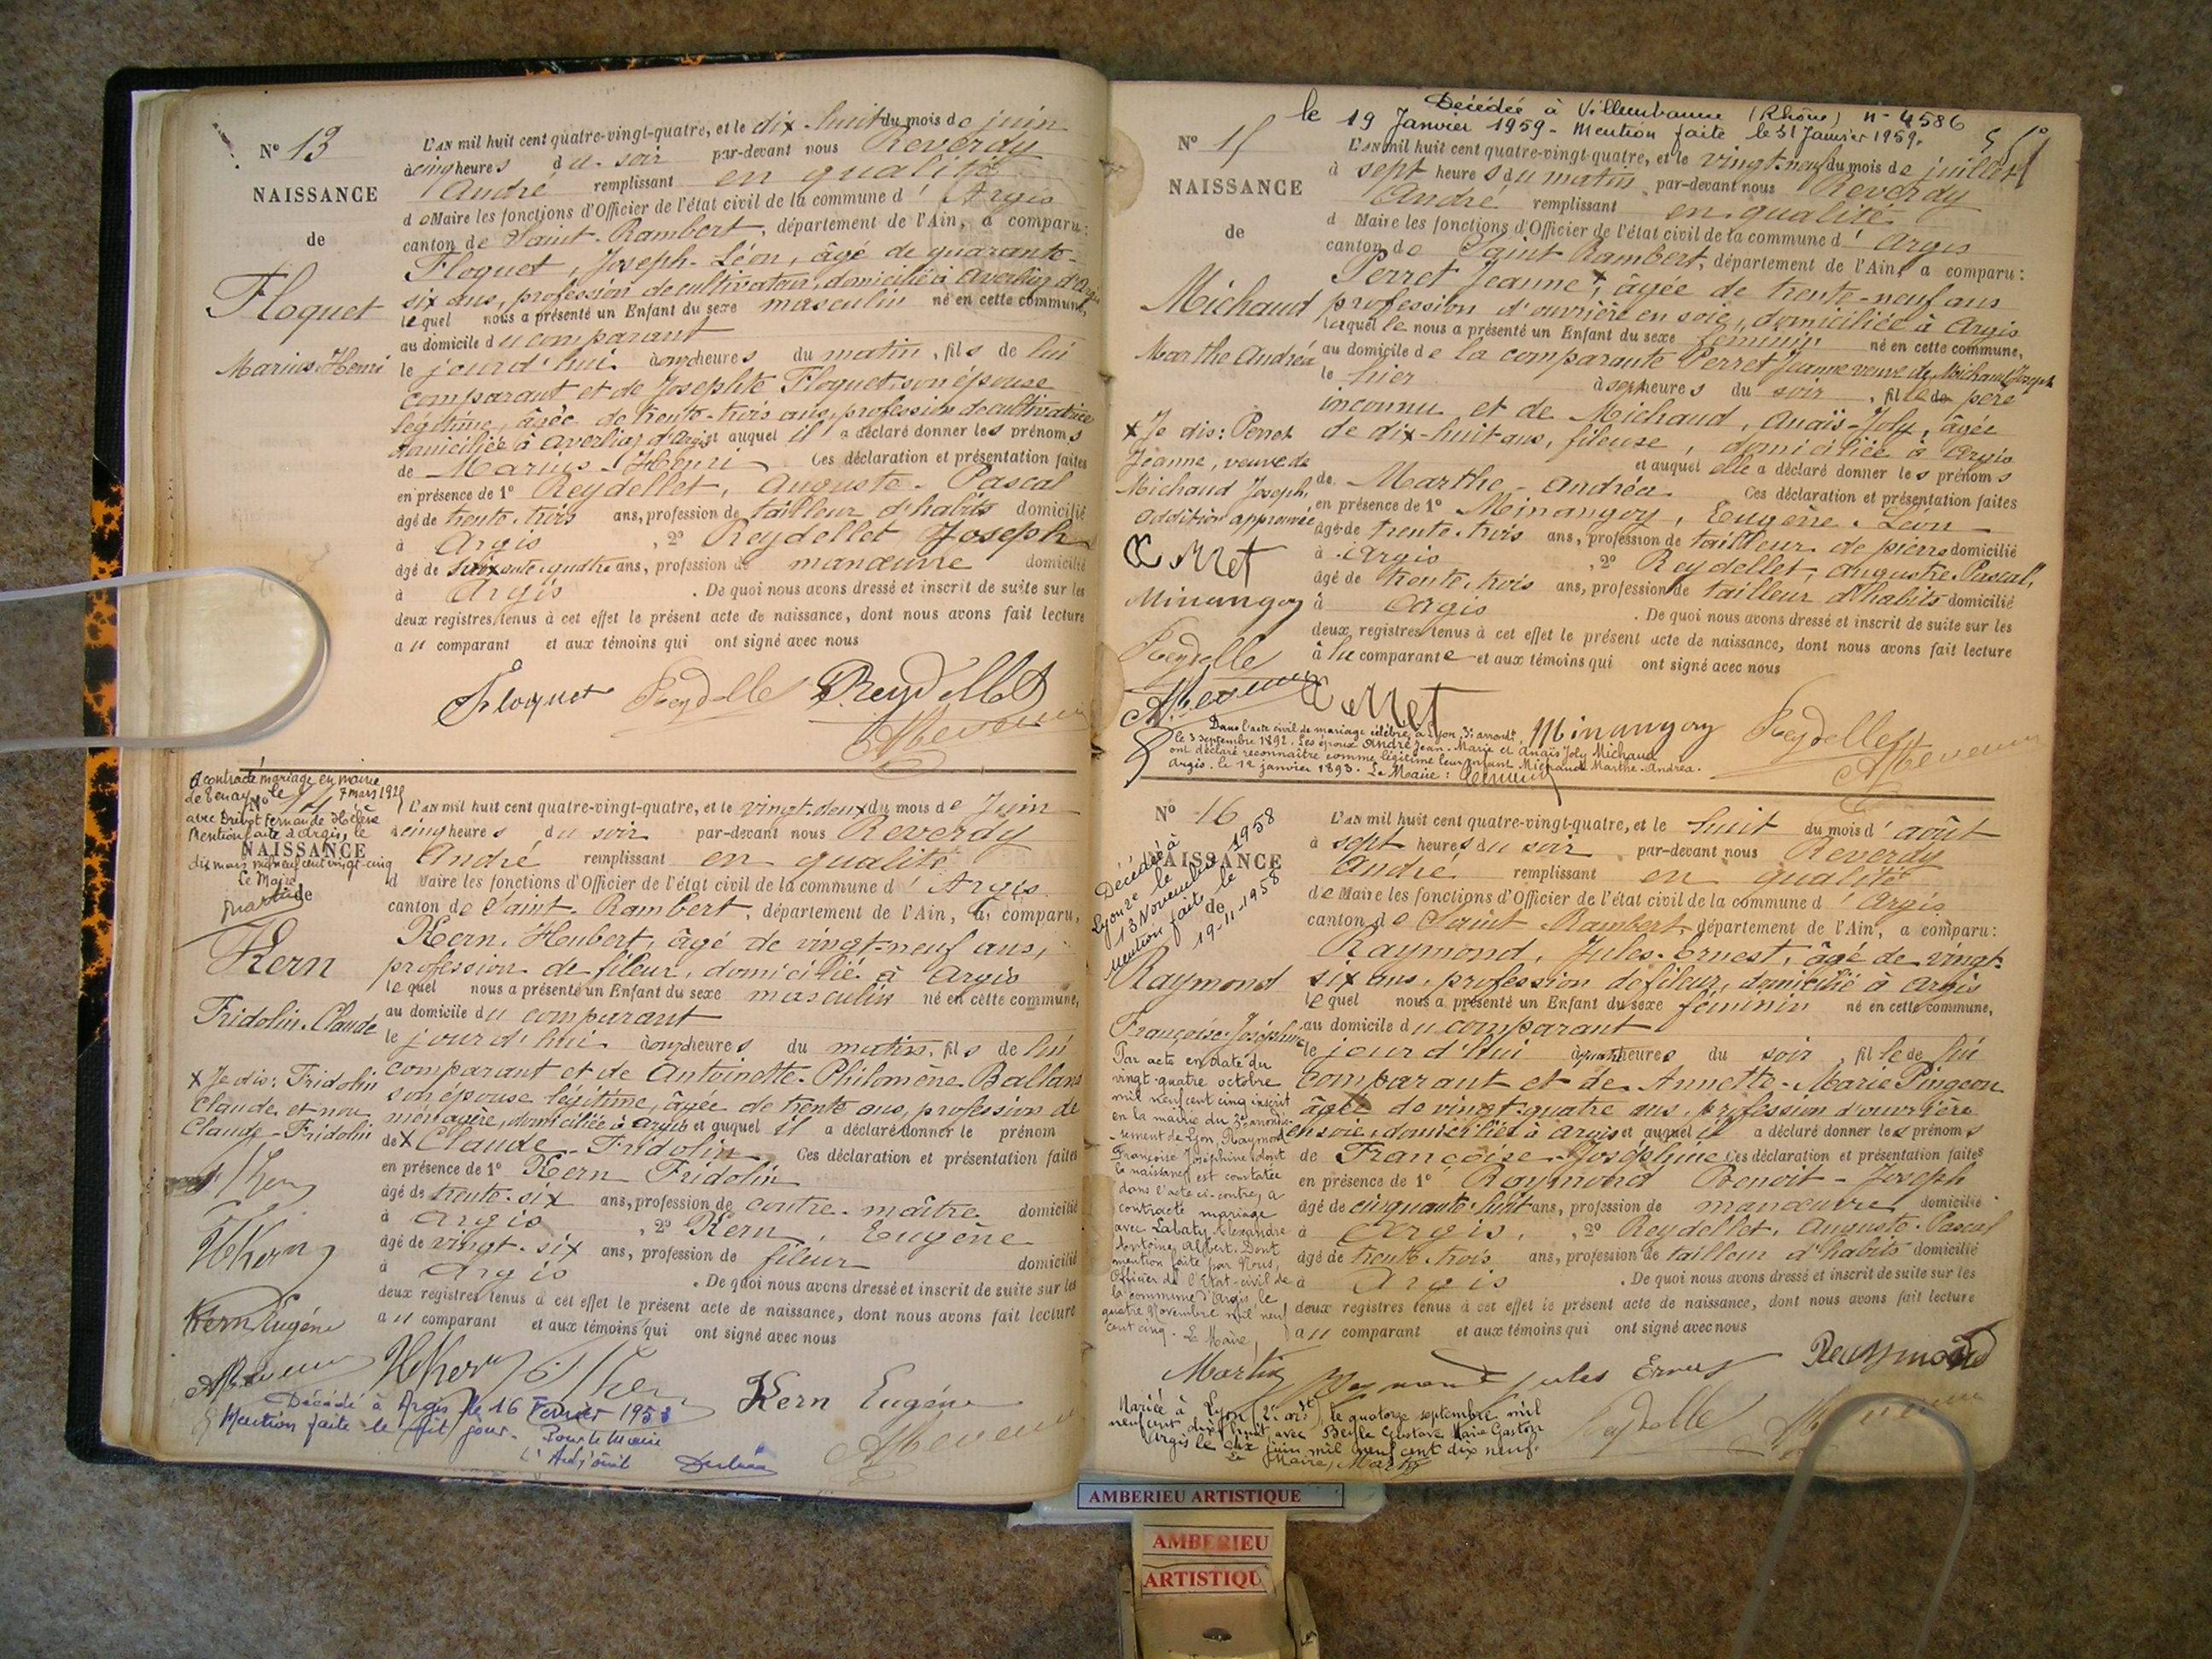 N° 13
NAISSANCE
de
Floquet
Marius Henri
L'AN mil huit cent quatre-vingt-quatre, et le dix-huit du mois de juin
à cinq heures du soir par-devant nous Reverdy
André remplissant en qualité
de Maire les fonctions d'Officier de l'état civil de la commune d'Argis
canton de Saint-Rambert, département de l'Ain, a comparu:
Floquet, Joseph-Léon, âgé de quarante-
six ans, profession de cultivateur, domicilié à Averliaz d'Argis
lequel nous a présenté un Enfant du sexe masculin né en cette commune,
au domicile du comparant
le jourd'hui à onze heures du matin, fils de lui
comparant et de Josephte Floquet son épouse
légitime, âgée de trente-trois ans, profession de cultivatrice
domiciliée à Averliaz d'Argis et auquel il a déclaré donner les prénoms
de Marius-Henri Ces déclaration et présentation faites
en présence de 1° Reydellet, Auguste-Pascal
âgé de trente-trois ans, profession de tailleur d'habits domicilié
à Argis , 2° Reydellet Joseph
âgé de soixante-quatre ans, profession de manœuvre domicilié
à Argis . De quoi nous avons dressé et inscrit de suite sur les
deux registres tenus à cet effet le présent acte de naissance, dont nous avons fait lecture
au comparant et aux témoins qui ont signé avec nous
Floquet Reydelle Reydellet
A contracté mariage en mairie
de Tenay, le 7 mars 1925
avec Drivot Fernande Hélène
Mention faite à Argis, le
dix mars mil neuf cent vingt-cinq
Le Maire
N° 14
NAISSANCE
de
Kern
Fridolin-Claude
X Je dis: Fridolin
Claude et non
Claude-Fridolin
Kern
HKern
Kern Eugène
L'AN mil huit cent quatre-vingt-quatre, et le vingt-deux du mois de Juin
à cinq heures du soir par-devant nous Reverdy
André remplissant en qualité
d Maire les fonctions d'Officier de l'état civil de la commune d'Argis
canton de Saint-Rambert, département de l'Ain, a comparu,
Kern, Heubert, âgé de vingt-neuf ans,
profession de fileur, domicilié à Argis
lequel nous a présenté un Enfant du sexe masculin né en cette commune,
au domicile du comparant
le jourd'hui à onze heures du matin, fils de lui
comparant et de Antoinette-Philomène Balland
son épouse légitime, âgée de trente ans, profession de
ménagère, domiciliée à Argis et auquel il a déclaré donner le prénom
de X Claude-Fridolin Ces déclaration et présentation faites
en présence de 1° Kern Fridolin
âgé de trente-six ans, profession de contre-maître domicilié
à Argis , 2° Kern, Eugène
âgé de vingt-six ans, profession de fileur domicilié
à Argis . De quoi nous avons dressé et inscrit de suite sur les
deux registres tenus à cet effet le présent acte de naissance, dont nous avons fait lecture
au comparant et aux témoins qui ont signé avec nous
HKern Kern Kern Eugène
Décédé à Argis le 16 Février 1958
Mention faite le dit jour. Pour le Maire
L'Adjoint
Décédée à Villeurbanne (Rhône) n° 4586
le 19 Janvier 1959 - Mention faite le 31 Janvier 1959.
N° 15
NAISSANCE
de
Michaud
Marthe Andréa
X Je dis: Perret
Jeanne, veuve de
Michaud Joseph,
addition approuvée
Perret
Minangoy
Reydelle
L'AN mil huit cent quatre-vingt-quatre, et le vingt-neuf du mois de juillet
à sept heures du matin par-devant nous Reverdy
André remplissant en qualité
d Maire les fonctions d'Officier de l'état civil de la commune d'Argis
canton de Saint Rambert, département de l'Ain, a comparu:
Perret Jeanne X, âgée de trente-neuf ans
profession d'ouvrière en soie, domiciliée à Argis
laquelle nous a présenté un Enfant du sexe féminin né en cette commune,
au domicile de la comparante Perret Jeanne veuve de Michaud Joseph
le hier à sept heures du soir, fille de père
inconnu et de Michaud, Anaïs-Joly, âgée
de dix-huit ans, fileuse, domiciliée à Argis
et auquel elle a déclaré donner les prénoms
de Marthe-Andréa Ces déclaration et présentation faites
en présence de 1° Minangoy, Eugène-Léon
âgé de trente-trois ans, profession de tailleur de pierre domicilié
à Argis , 2° Reydellet, Auguste-Pascal,
âgé de trente-trois ans, profession de tailleur d'habits domicilié
à Argis . De quoi nous avons dressé et inscrit de suite sur les
deux registres tenus à cet effet le présent acte de naissance, dont nous avons fait lecture
à la comparante et aux témoins qui ont signé avec nous
Perret Minangoy Reydelle
Dans l'acte civil de mariage célébré à Lyon, 3e arrondt,
le 3 septembre 1892, les époux André Jean-Marie et Anaïs Joly Michaud
ont déclaré reconnaître comme légitime leur enfant Michaud Marthe-Andréa.
Argis, le 12 janvier 1893. Le Maire:
N° 16
NAISSANCE
de
Décédée à
Lyon 2e le
13 Novembre 1958
Mention faite le
19-11-1958
Raymond
Françoise-Joséphine
Par acte en date du
vingt-quatre octobre
mil neuf cent cinq inscrit
en la mairie du 3e arrondis-
sement de Lyon, Raymond
Françoise Joséphine dont
la naissance est constatée
dans l'acte ci-contre, a
contracté mariage
avec Labaty Alexandre
Antoine Albert. Dont
mention faite par Nous,
Officier de l'Etat-civil de
la commune d'Argis le
quatre Novembre mil neuf
cent cinq. Le Maire,
Martin
L'AN mil huit cent quatre-vingt-quatre, et le huit du mois d'août
à sept heures du soir par-devant nous Reverdy
André remplissant en qualité
de Maire les fonctions d'Officier de l'état civil de la commune d'Argis
canton de Saint-Rambert, département de l'Ain, a comparu:
Raymond, Jules-Ernest, âgé de vingt-
six ans, profession de fileur, domicilié à Argis
lequel nous a présenté un Enfant du sexe féminin né en cette commune,
au domicile du comparant
le jourd'hui à quatre heures du soir, fille de lui
comparant et de Annette-Marie Pingeon
âgée de vingt-quatre ans, profession d'ouvrière
en soie, domiciliée à Argis et auquel il a déclaré donner les prénoms
de Françoise-Joséphine Ces déclaration et présentation faites
en présence de 1° Raymond Benoit-Joseph
âgé de cinquante-huit ans, profession de manœuvre domicilié
à Argis, 2° Reydellet, Auguste-Pascal
âgé de trente-trois ans, profession de tailleur d'habits domicilié
à Argis . De quoi nous avons dressé et inscrit de suite sur les
deux registres tenus à cet effet le présent acte de naissance, dont nous avons fait lecture
au comparant et aux témoins qui ont signé avec nous
Raymond Jules Ernest Raymond
Reydelle
Mariée à Lyon (2e arrt), le quatorze septembre mil
neuf cent dix huit, avec Beysle Gustave Marie Gaston
Argis le dix juin mil neuf cent dix neuf.
Le Maire, Martin
AMBERIEU ARTISTIQUE
AMBERIEU
ARTISTIQU